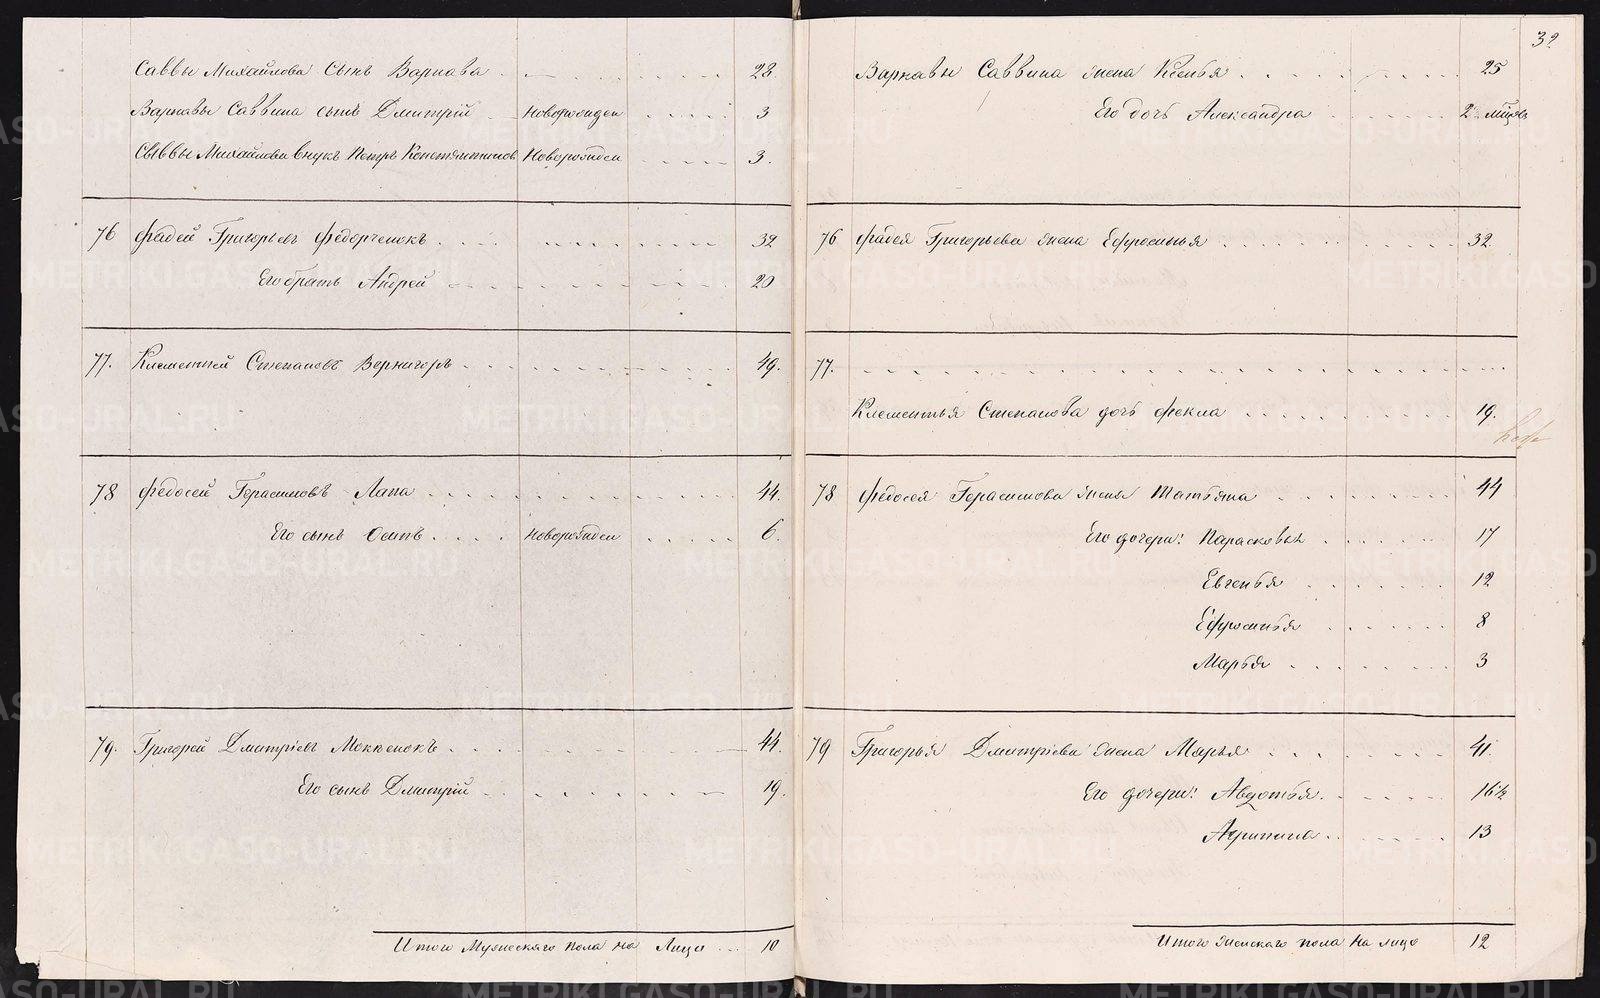 Саввы Михайлова сынъ Варнава 28
Варнавы Саввина сынъ Дмитрій новорожден 3
Саввы Михайлова внукъ Петръ Константиновъ новорожден 3.
76 Фадей Григорьевъ Федорченокъ 32
Его братъ Андрей 20
77. Клементей Степановъ Вернигоръ 49.
78 Федосей Герасимовъ Лапа 44.
Его сынъ Осипъ новорожден 6.
79. Григорей Дмитріевъ Моккенокъ 44.
Его сынъ Дмитрій 19.
Итого Мужескаго пола на Лицо 10
32
Варнавы Саввина жена Ксенья 25
Его дочь Александра 2 мѣцов
76 Фадея Григорьева жена Ефросинья 32
77.
Клементья Степанова дочь Фекла 19.
78 Федосея Герасимова жена Татьяна 44
Его дочери: Парасковья 17
Евгенья 12
Ефросинья 8
Марья 3
79 Григорья Дмитріева жена Марья 41
Его дочери: Авдотья 16½
Агрипина 13
Итого женскаго пола на лицо 12
METRIKI.GASO-URAL.RU